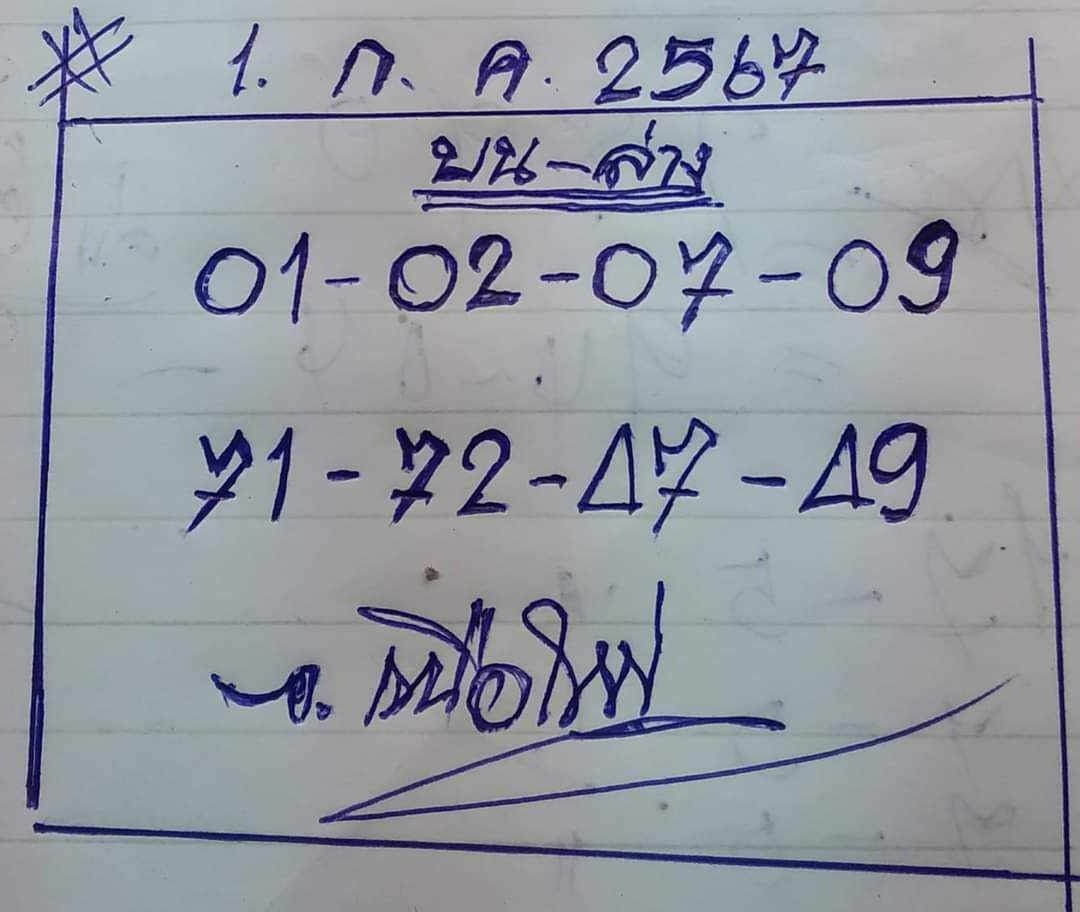 1. ก. ค. 2567
บน-ล่าง
01-02-07-09
71-72-47-49
อ. มือใหม่